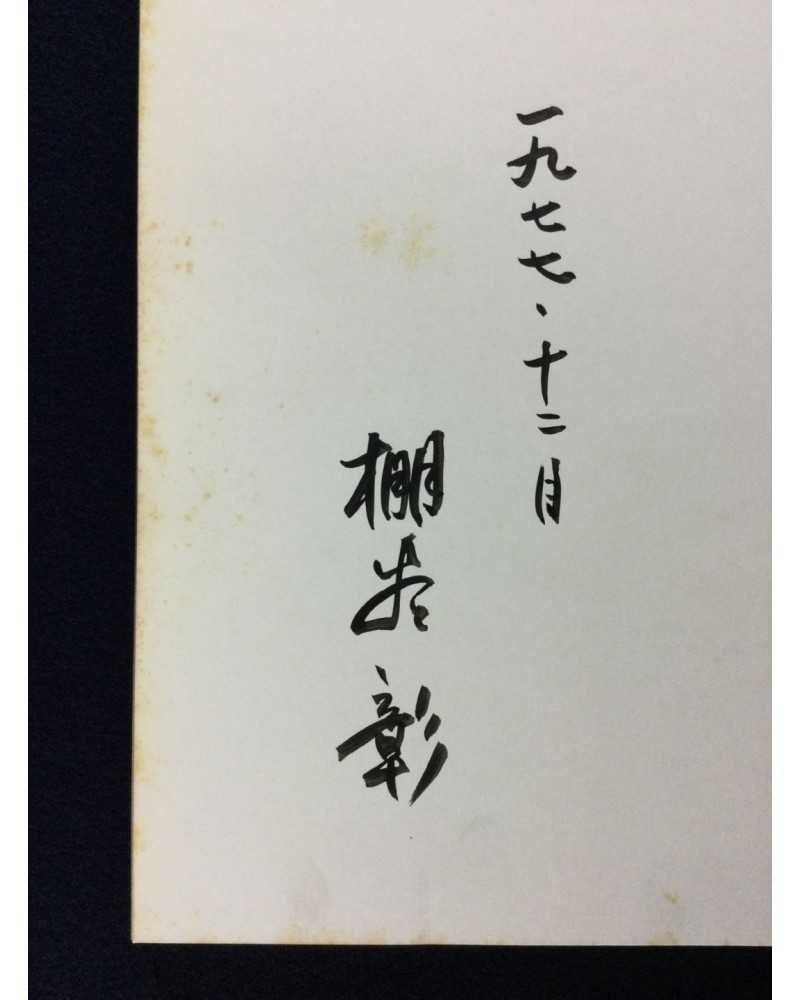 一九七七、十二月
棚 彰